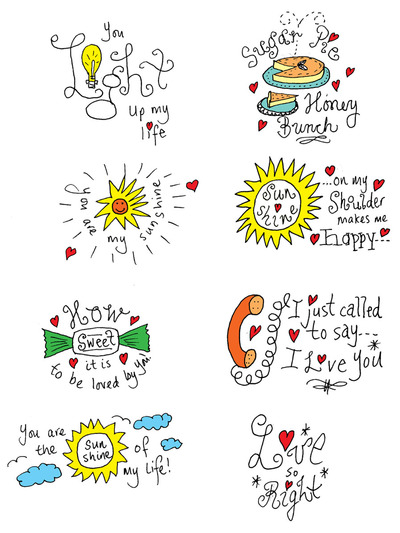 You
Light
up my
life
Sugar Pie
Honey
Bunch
you are my sunshine
Sun
shine
...on my
Shoulder
makes me
Happy---
How
Sweet
it is
to be loved by you
I just called
to say---
I Love you
You are
the
sun
shine
of
my life!
Love
so
Right